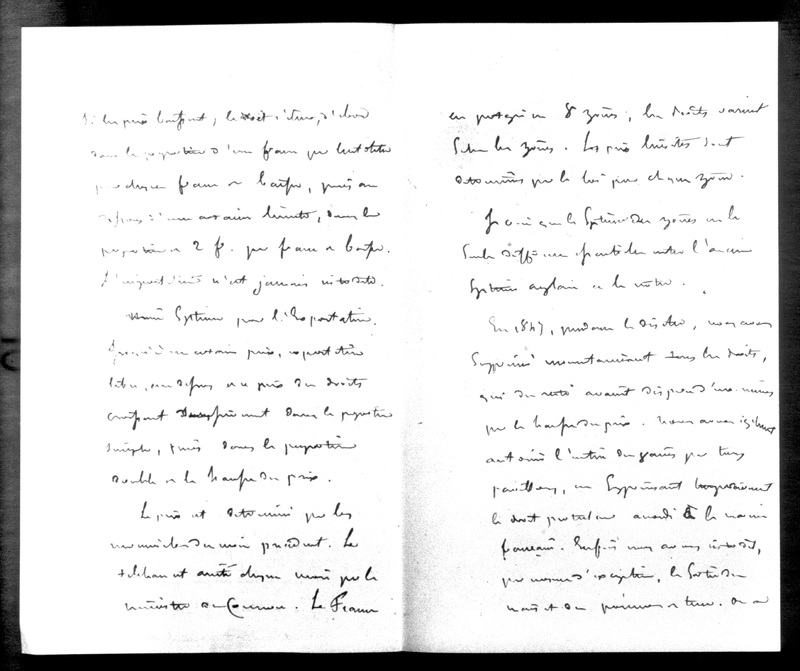 Si les prix baissent, le droit s'élève, d'abord
dans la proportion d'un franc par hectolitre
par chaque franc de baisse, puis au
dessous d'une certaine limite, dans la
proportion de 2 f. par franc de baisse.
L'importation n'est jamais interdite.
Même Système pour l'Exportation.
Jusqu'à un certain prix, exportation
libre, au dessus de ce prix des droits
croissant dans la proportion
simple, puis dans la proportion
double de la hausse du prix.
Le prix est déterminé par les
mercuriales du mois précédent. Le
tableau est arrêté chaque mois par le
ministre du Commerce. La France
est partagée en 8 zônes ; les droits varient
Selon les zônes. Les prix limites sont
déterminés par la loi pour chaque zône.
Je crois que le Système des zônes est la
Seule différence essentielle entre l'ancien
Système anglais et le nôtre.
En 1847, pendant la disette, nous avons
Supprimé momentanément tous les droits,
qui du reste avaient disparu d'eux-mêmes
par la hausse du prix. Nous avons également
autorisé l'entrée des grains par tous
pavillons, en Supprimant temporairement
le droit protecteur accordé à la marine
française. Enfin nous avons interdit,
par mesure d'exception, la Sortie des
maïs et des pommes de terre. On a